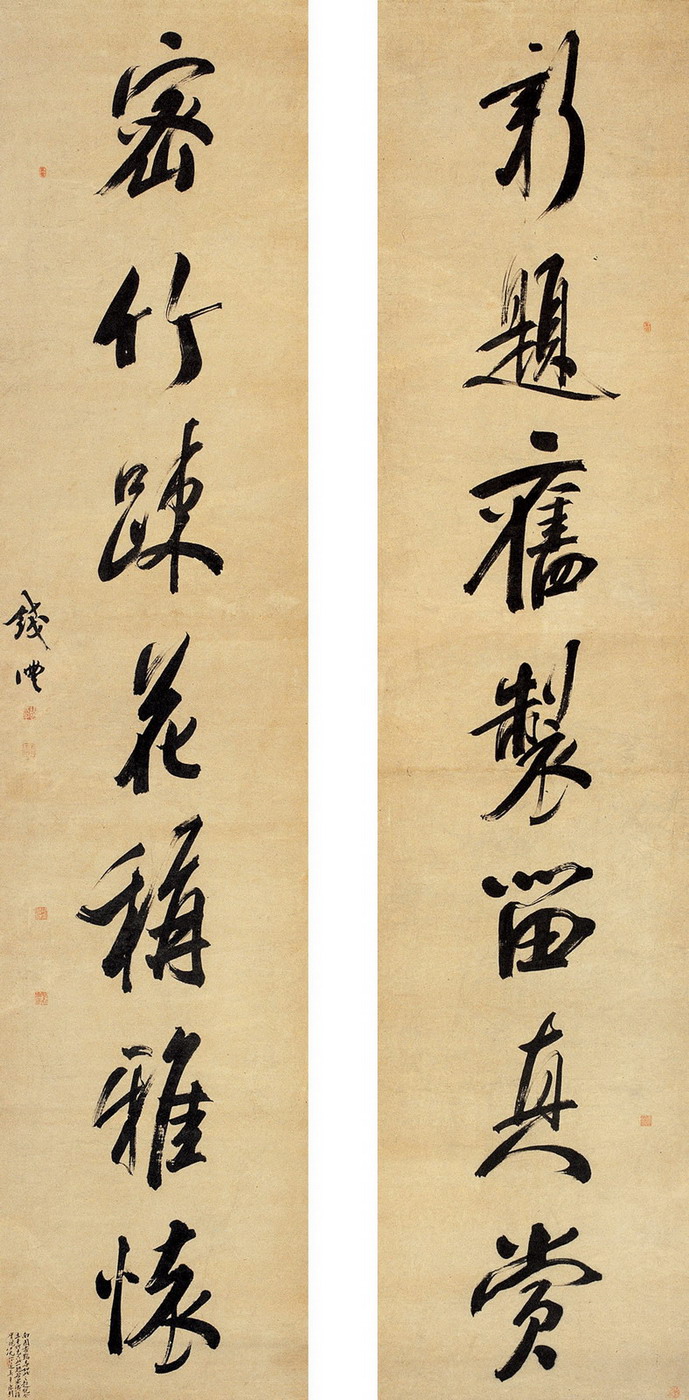 新題舊製留真賞
密竹疎花稱雅懷
錢灃